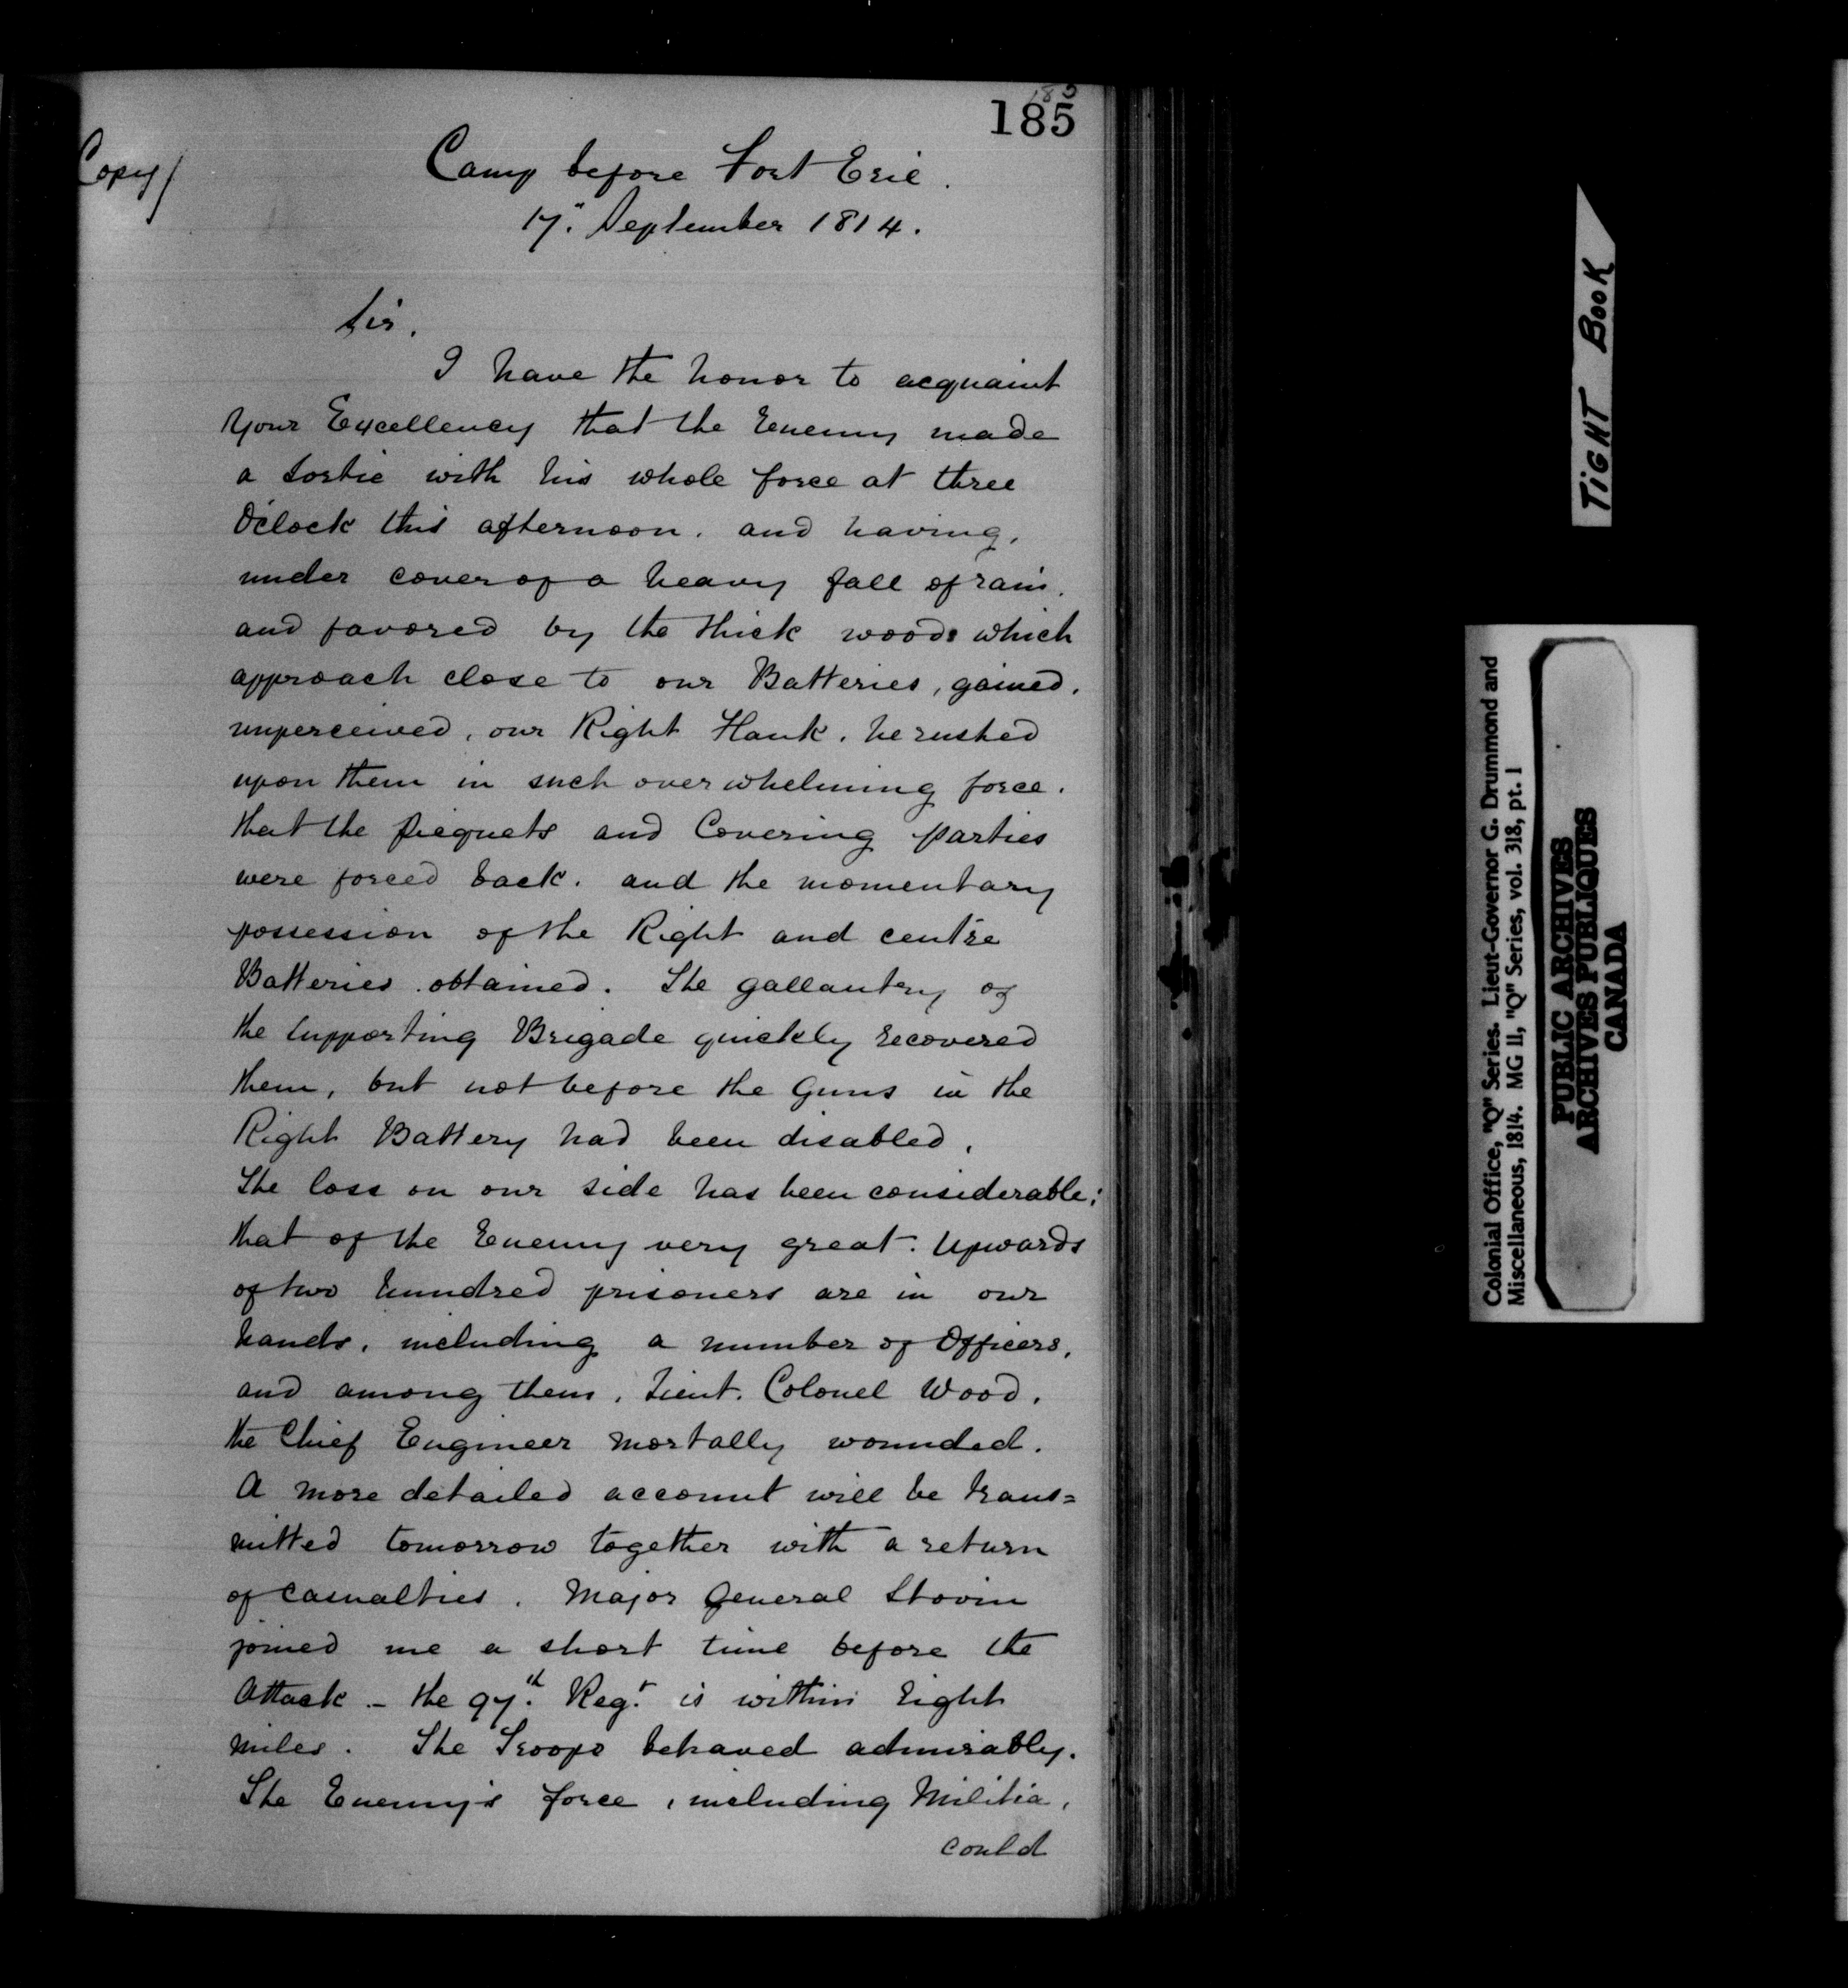 185
Copy/
Camp before Fort Erie.
17th. September 1814.
Sir.
I have the honor to acquaint
Your Excellency that the Enemy made
a sortie with his whole force at three
O'clock this afternoon. and having,
under cover of a heavy fall of rain.
and favored by the thick woods which
approach close to our Batteries, gained.
unperceived, our Right Flank. he rushed
upon them in such overwhelming force.
that the picquets and Covering parties
were forced back. and the momentary
possession of the Right and centre
Batteries obtained. The gallantry of
the Supporting Brigade quickly recovered
them, but not before the Guns in the
Right Battery had been disabled.
The loss on our side has been considerable;
that of the Enemy very great. Upwards
of two hundred prisoners are in our
hands, including a number of Officers,
and among them, Lieut. Colonel Wood,
the Chief Engineer mortally wounded.
A more detailed account will be trans=
mitted tomorrow together with a return
of casualties. Major General Stovin
joined me a short time before the
Attack - the 97th. Regt. is within Eight
miles. The Troops behaved admirably.
The Enemy's force, including Militia,
could
TIGHT BOOK
Colonial Office, "Q" Series. Lieut-Governor G. Drummond and
Miscellaneous, 1814. MG 11, "Q" Series, vol. 318, pt. 1
PUBLIC ARCHIVES
ARCHIVES PUBLIQUES
CANADA